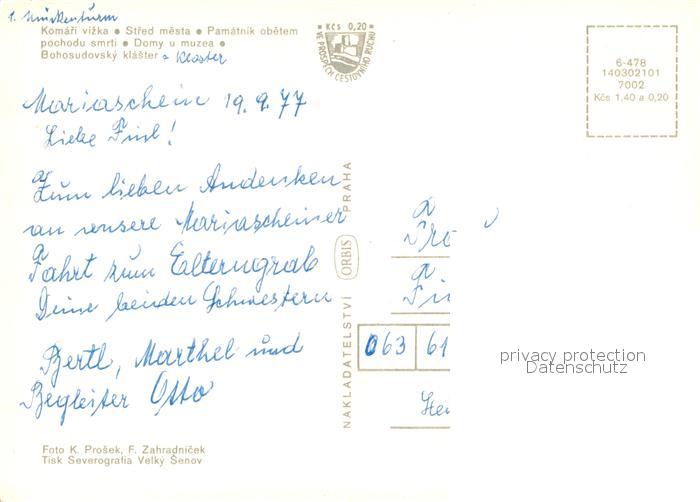 1. Mückenturm
Komáří vížka ● Střed města ● Památník obětem
pochodu smrti ● Domy u muzea ●
Bohosudovský klášter = Kloster
Kčs 0,20
VE PROSPĚCH CESTOVNÍHO RUCHU
6-478
140302101
7002
Kčs 1,40 a 0,20
Mariaschein 19.9.77
Liebe !
Zum lieben Andenken
an unsere Mariascheiner
Fahrt zum Elterngrab
Deine beiden Schwestern
Bertl, Marthel und
Begleiter Otto
NAKLADATELSTVÍ ORBIS PRAHA
063 61
privacy protection
Datenschutz
Foto K. Prošek, F. Zahradníček
Tisk Severografia Velký Šenov